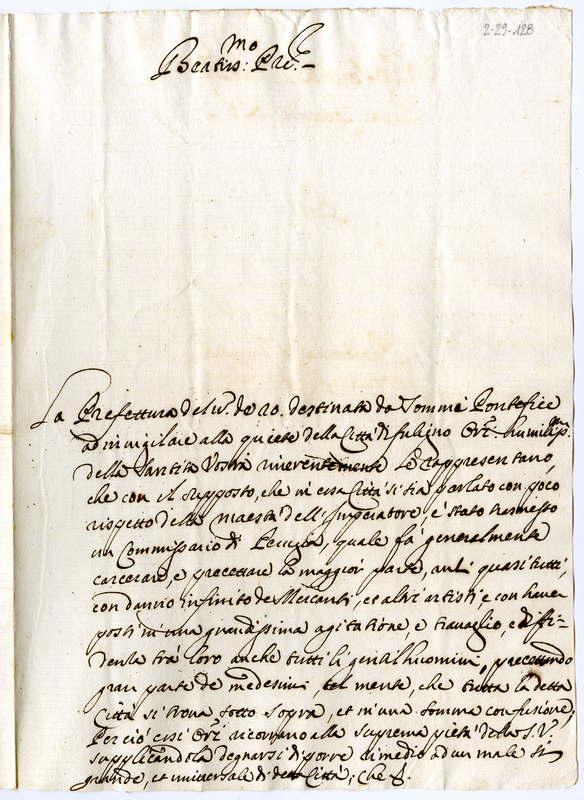 2-29-128
Beatiss:mo Pre.
La Prefettura del n.o de 20. destinata da Sommi Pontefici
ad invigilare alla quiete della Città di fuligno Ori humiliss.
della Santità Vostra riverentemente Le rappresentano,
che con il supposto, che in essa Città si sia parlato con poco
rispetto della maestà dell'Imperadore, è stato trasmesso
un Commissario di Perugia, quale fà generalmente
carcerare, e precettare la maggior parte, anzi quasi tutti,
con danno infinito de Mercanti, et altri artisti, e con haver
posti in una grandissima agitatione, e travaglio, e diffi-
denza trà loro anche tutti li gentilhuomini, precettando
gran parte de medesimi, tal mente, che tutta la detta
Città si trova sotto sopra, et in una somma confusione;
Perciò essi Ori ricorrano alla suprema pietà della S.V.
supplicandola degnarsi di porre rimedio ad un male sì
grande, et universale di detta Città; che